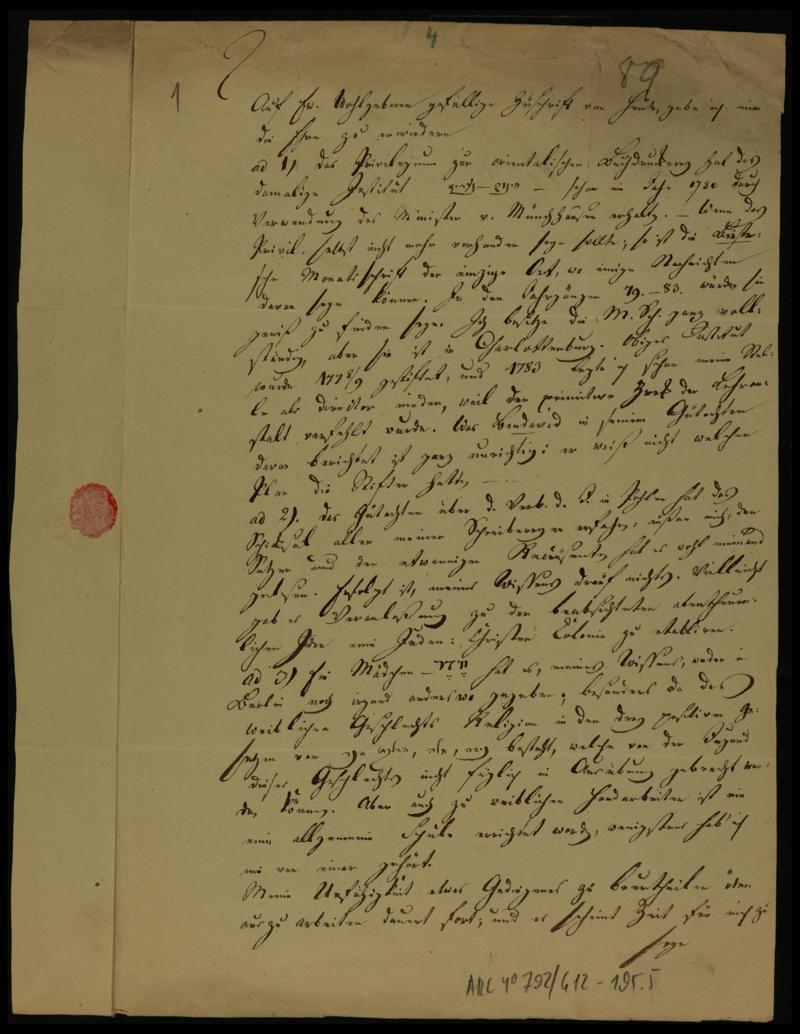 4
89
1
Auf Ew. Wohlgeboren gefällige Zuschrift von heute, gebe ich mir
die Ehre zu erwiedern
ad 1). Das Privilegium zur orientalischen Buchdruckerey hat das
damalige Institut — schon im Jahr 1780 durch
Verwendung des Minister v. Münchhausen erhalten. — Wenn das
Privil. selbst nicht mehr vorhanden seyn sollte; so ist die
sche Monatsschrift der einzige Ort, wo einige Nachrichten
davon seyn können. In den Jahrgängen 79.–83. würden sie
gewiß zu finden seyn. Ich besitze die M. Sch. ganz voll-
ständig, aber sie ist in Charlottenburg. Obiges Institut
wurde 1778/9 gestiftet, und 1783 legte ich schon meine Stel-
le als Director nieder, weil der primitive Zweck der Lehran-
stalt verfehlt wurde. Was Bendavid in seinem Gutachten
davon berichtet ist ganz unrichtig: er weiß nicht welchen
Plan die Stifter hatten — . . .
ad 2). Das Gutachten über d. Verb. d. J. in Pohlen hat das
Schicksal aller meiner Schreibereyen erfahren: außer mir, dem
Setzer und den etwannigen Recensenten hat es wohl niemand
gelesen. Erfolgt ist, meines Wissens drauf nichts. Vielleicht
gab es Veranlaßung zu der beabsichteten abentheuer-
lichen Idee eine Juden-Christen Colonie zu etabliren.
ad 3) Ein Mädchen – חדר hat es, meines Wissens, weder in
Berlin noch irgend anderswo gegeben; besonders da des
weiblichen Geschlechts Religion in den drey positiven Ge-
setzen von besteht, welche von der Jugend
dieses Geschlechts nicht füglich in Ausübung gebracht wer-
den können. Aber auch zu weiblichen Handarbeiten ist nie
eine allgemeine Schule errichtet worden, wenigstens hab' ich
nie von einer gehört.
Meine Unfähigkeit etwas Gediegenes zu beurtheilen oder
auszuarbeiten dauert fort; und es scheint Zeit für mich zu
seyn
ARC 4° 792/G12 - 195.5